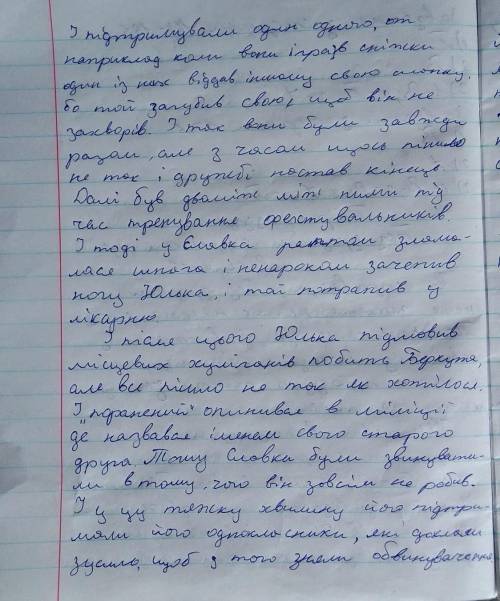 І підтримували один одного, от
наприклад коли вони іграв сніжки
один із них віддав іншому свою шапку,
бо той загубив свою, щоб він не
захворів. І так вони були завжди
разом, але з часом щось пішло
не так і дружбі настав кінець.
Далі був двобій між ними під
час тренування фехтувальників.
І тоді у Славка раптом злама-
лася шпага і ненароком зачепив
ногу Юлька, і той потрапив у
лікарню.
І після цього Юлька підмовив
місцевих хуліганів побить Беркута,
але все пішло не так як хотілося.
І "поранений" опинився в міліції
де назвався іменем свого старого
друга. Тому Славка були звинувати-
ли в тому, чого він зовсім не робив.
І у цу тяжку хвилину його підтри-
мали його однокласники, які доклали
зусиль, щоб з того зняли обвинувачення